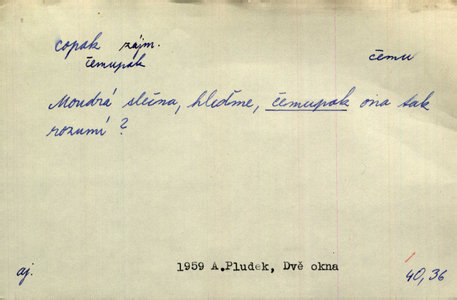 copak zájm.
čemupak
čemu
Moudrá slečna, hleďme, čemupak ona tak
rozumí?
1959 A.Pludek, Dvě okna
aj.
40,36